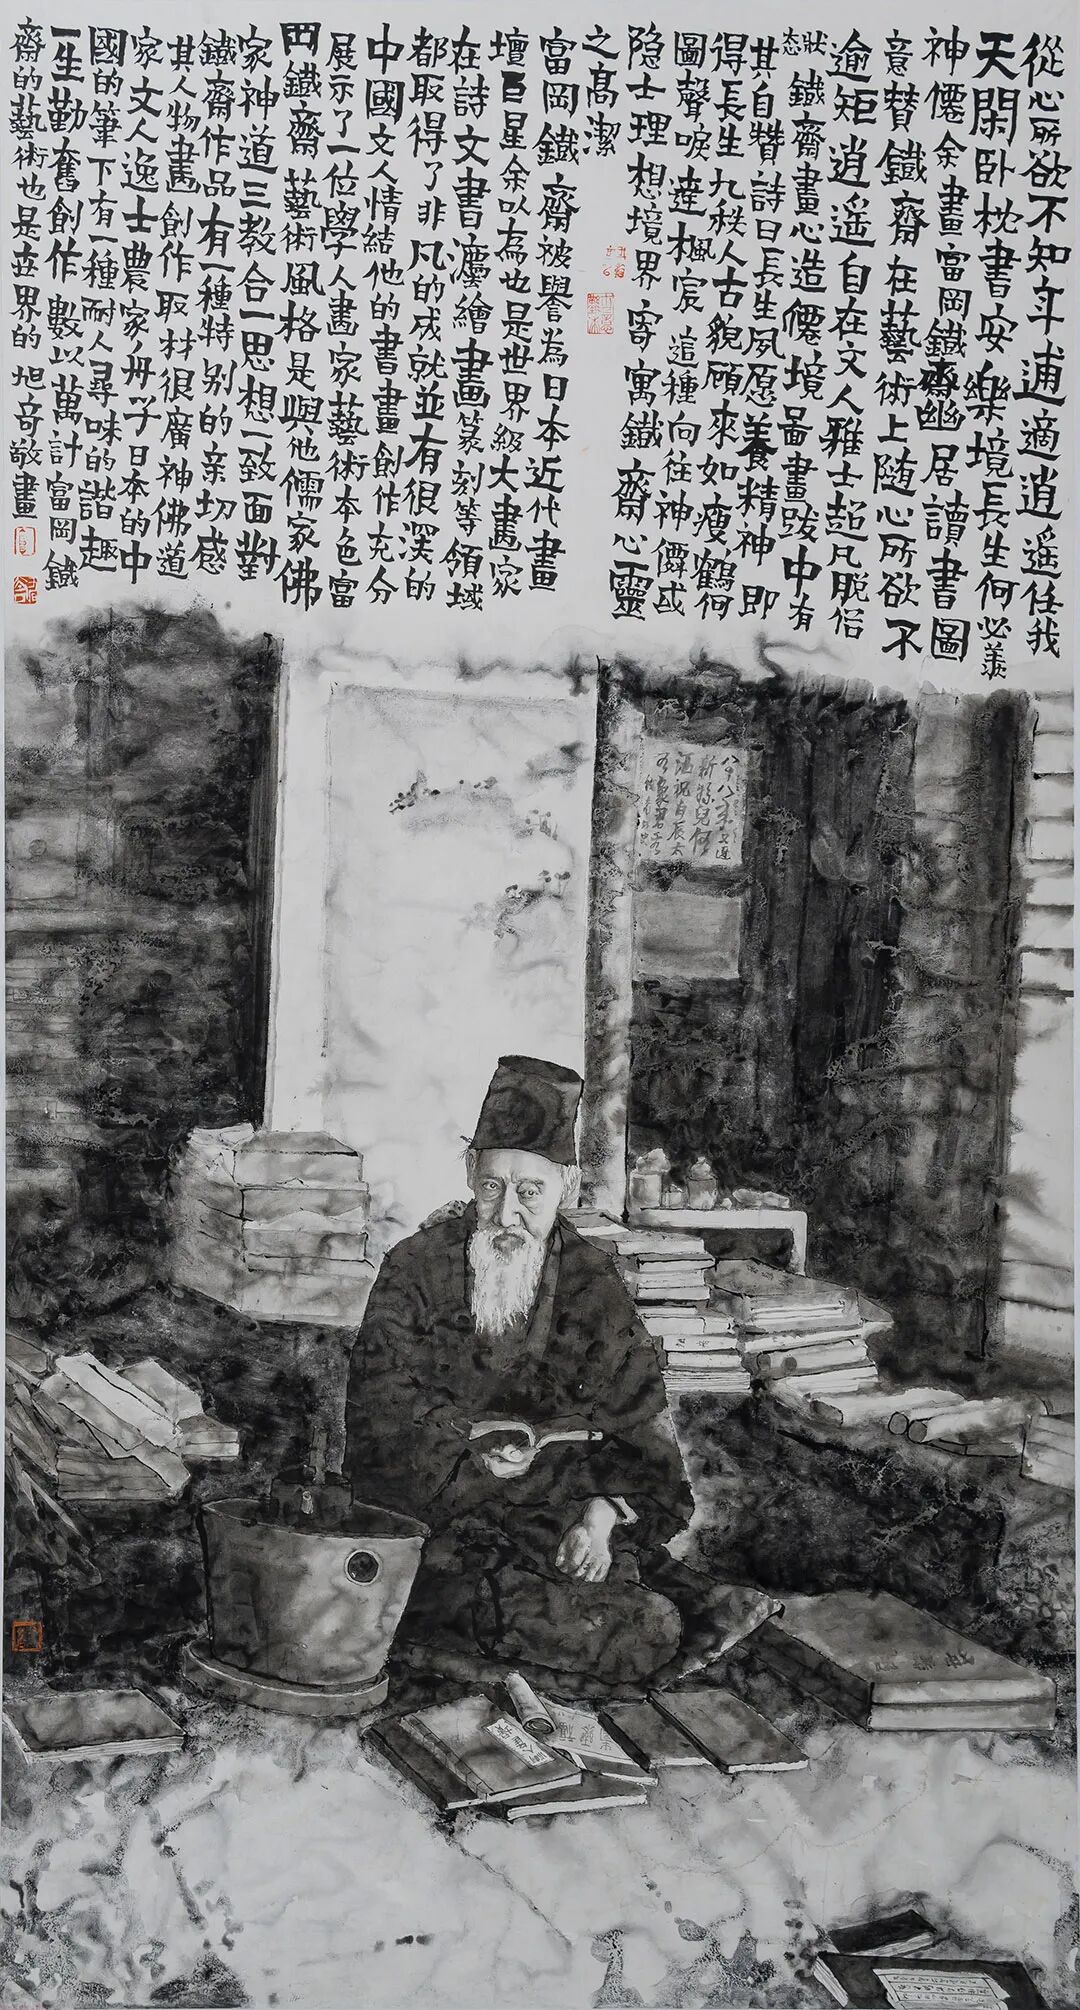 從心所欲不知年逋適逍遥任我
天閑卧枕書安樂境長生何必羨
神僊余畫富岡鐵齋幽居讀書圖
意赞鐵齋在藝術上隨心所欲不
逾矩逍遥自在文人雅士超凡脱俗
狀态鐵齋畫心造僊境啚畫跋中有
其自贊詩曰長生夙愿養精神即
得長生九秩人古貌顾來如瘦鶴何
圖聲唳達楓宸這種向往神僊或
隐士理想境界寄寓鐵齋心靈
之高潔
富岡鐵齋被譽為日本近代畫
壇巨星余以為也是世界級大畫家
在詩文書灋繪畫篆刻等領域
都取得了非凡的成就並有很深的
中國文人情結他的書畫創作充分
展示了一位學人畫家藝術本色富
罔鐵齋藝術風格是與他儒家佛
家神道三教合一思想一致面對
鐵齋作品有一種特别的亲切感
其人物畫創作取材很廣神佛道
家文人逸士農家舟子日本的中
國的筆下有一種耐人尋味的諧趣
一生勤奮創作數以萬計富岡鐵
齋的藝術也是世界的 旭奇敬畫